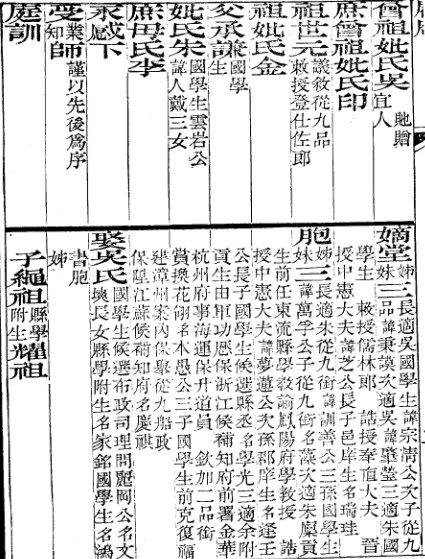 曾祖妣氏吳 貤贈
宜人
庶曾祖妣氏印
祖世元 議敘從九品
敕授登仕佐郎
祖妣氏金
父承謙 國學生
妣氏朱 國學生雲岩公
諱人戴三女
庶母氏李
永感下
受業
知師 謹以先後為序
庭訓
嫡堂姊
妹三 長適吳國學生諱宗清公次子從九
品諱秉 次適吳諱肇瑩三適朱國
學生 敕授儒林郎 誥授奉直大夫 晉
授中憲大夫諱芝公長子邑庠生名瑞珪
胞姊
妹三 長適朱從九銜諱訓善公三孫國學生
諱萬孚公子從九銜名藻次適朱廩貢
生前任東流縣學教諭鳳陽府學教授 誥
授中憲大夫諱夢蘧公次孫郡庠生名逢壬
公長子國學生候選縣丞名學光三適余附
貢生由軍功歷保浙江候補知府前署金華
杭州府事海運保升道員 欽加二品銜
賞換花翎名本愚公三子國學生前克復福
建漳州案內保舉從九船政
保陞江蘇候補知府名慶祺
娶吳氏 國學生候選布政司理問麗岡公名文
長女縣學附生名家銘國學生名鴻
書胞
姊
子繩祖 縣學
附生 耀祖